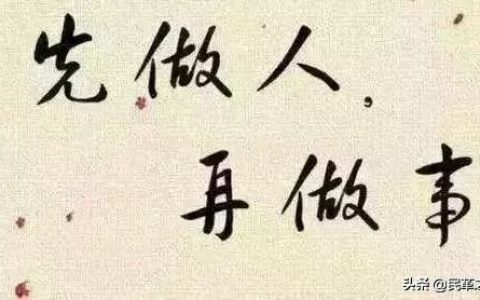 先做人，
再做事
头条 @民革